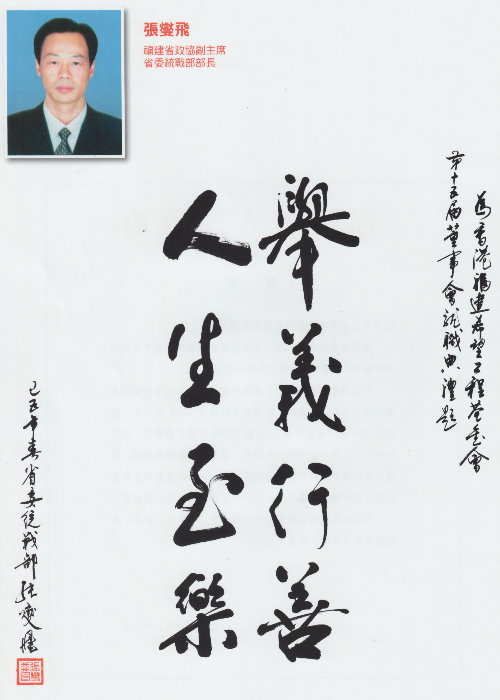 張燮飛
福建省政協副主席
省委統戰部部長
為香港福建希望工程基金會
第十五屆董事會就職典禮題
舉義行善
人生至樂
己丑年春省委統戰部張燮飛